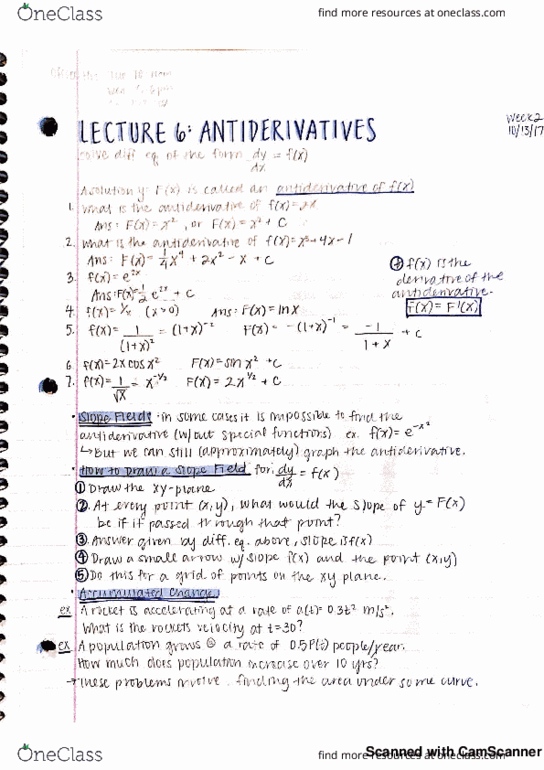 OneClass
find more resources at oneclass.com
LECTURE 6: ANTIDERIVATIVES
Week 2
10/13/17
solve diff eq of the form dy/dx = f(x)
A solution y = F(x) is called an antiderivative of f(x)
1. What is the antiderivative of f(x)=2x
Ans: F(x)=x², or F(x)=x²+C
2. What is the antiderivative of f(x)=x³+4x-1
Ans: F(x)=1/4x⁴+2x²-x+C
3. f(x)=e^2x
Ans: F(x)=1/2 e^2x + C
* f(x) is the
derivative of the
antiderivative.
f(x)=F'(x)
4. f(x)=1/x (x>0) Ans: F(x)=ln x
5. f(x)= 1/(1+x)² = (1+x)^-2 F(x)= -(1+x)^-1 = -1/1+x + C
6. f(x)=2xcosx² F(x)=sin x² +C
7. f(x)=1/√x = x^-1/2 F(x)=2x^1/2 + C
• Slope Fields: in some cases it is impossible to find the
antiderivative (w/out special functions). ex. f(x)=e^-x²
↳ but we can still (approximately) graph the antiderivative.
• How to Draw a Slope Field for: dy/dx = f(x)
① Draw the xy-plane
② At every point (x,y), what would the slope of y=F(x)
be if it passed through that point?
③ Answer given by diff. eq. above, slope is f(x)
④ Draw a small arrow w/ slope f(x) and the point (x,y)
⑤ Do this for a grid of points on the xy plane.
• Accumulated Change
ex A rocket is accelerating at a rate of a(t)=0.3t² m/s².
What is the rockets velocity at t=30?
ex A population grows @ a rate of 0.5P(t) people/year.
How much does population increase over 10 yrs?
→ These problems involve finding the area under some curve.
Scanned with CamScanner
OneClass
find more resources at oneclass.com